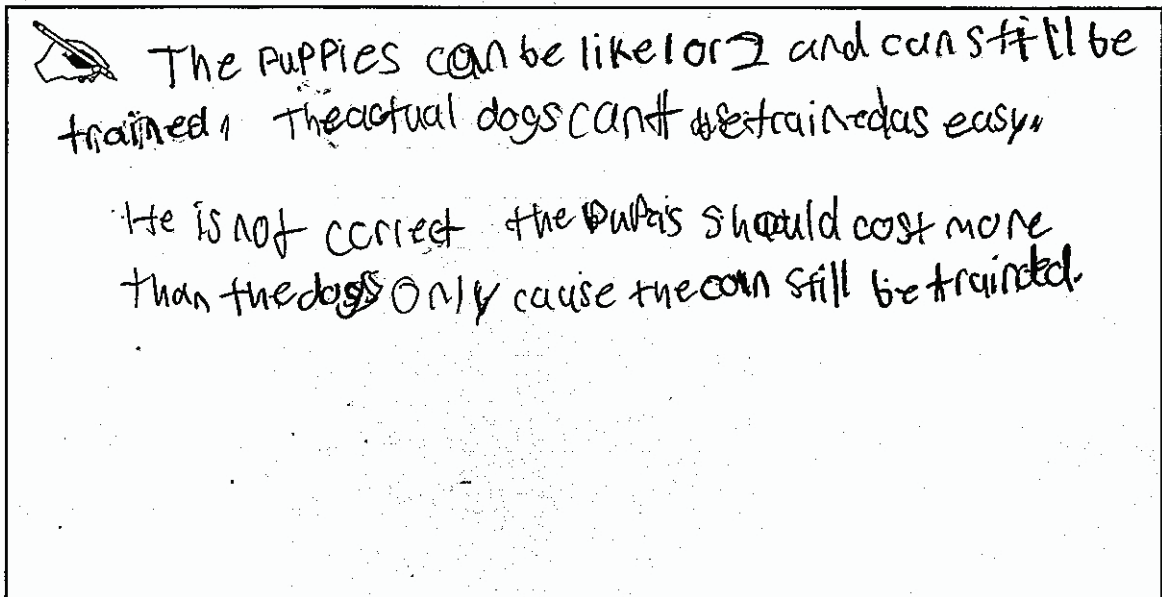 The puppies can be like 1 or 2 and can still be
trained. The actual dogs can't be trained as easy.
He is not correct the pupais should cost more
than the dogs only cause the can still be trainded.